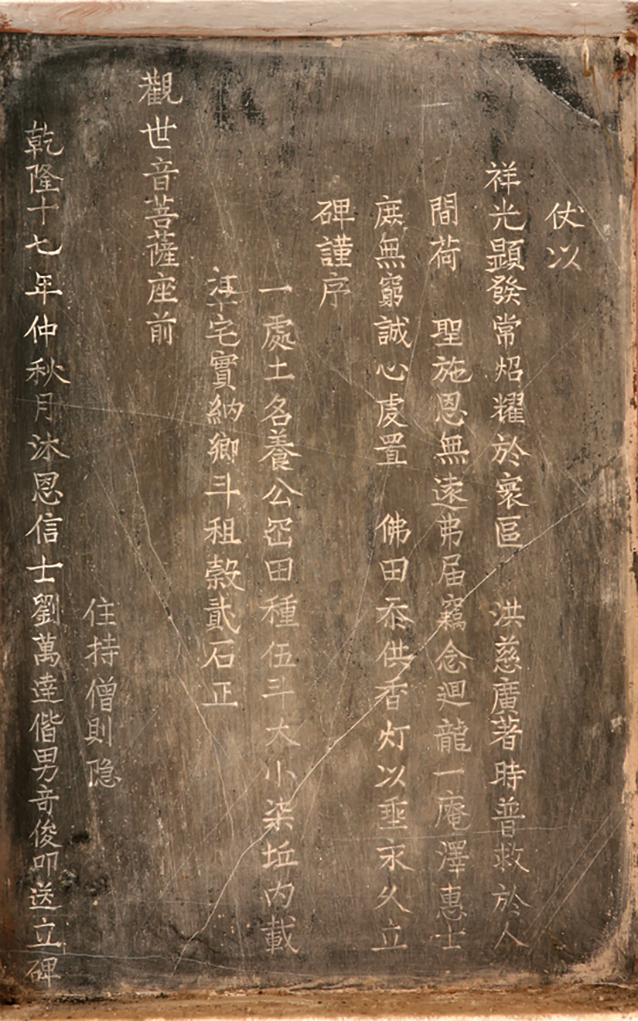 伏以
祥光顯發常炤耀於寰區 洪慈廣著時普救於人
間荷 聖施恩無遠弗届竊念迴龍一庵澤惠士
庶無窮誠心虔置 佛田忝供香灯以垂永久立
碑謹序
一處土名養公窑田種伍斗大小柒坵内載
宅實納鄉斗租穀貳石正
觀世音菩薩座前
住持僧則隐
乾隆十七年仲秋月沐恩信士劉萬達偕男奇俊叩送立碑